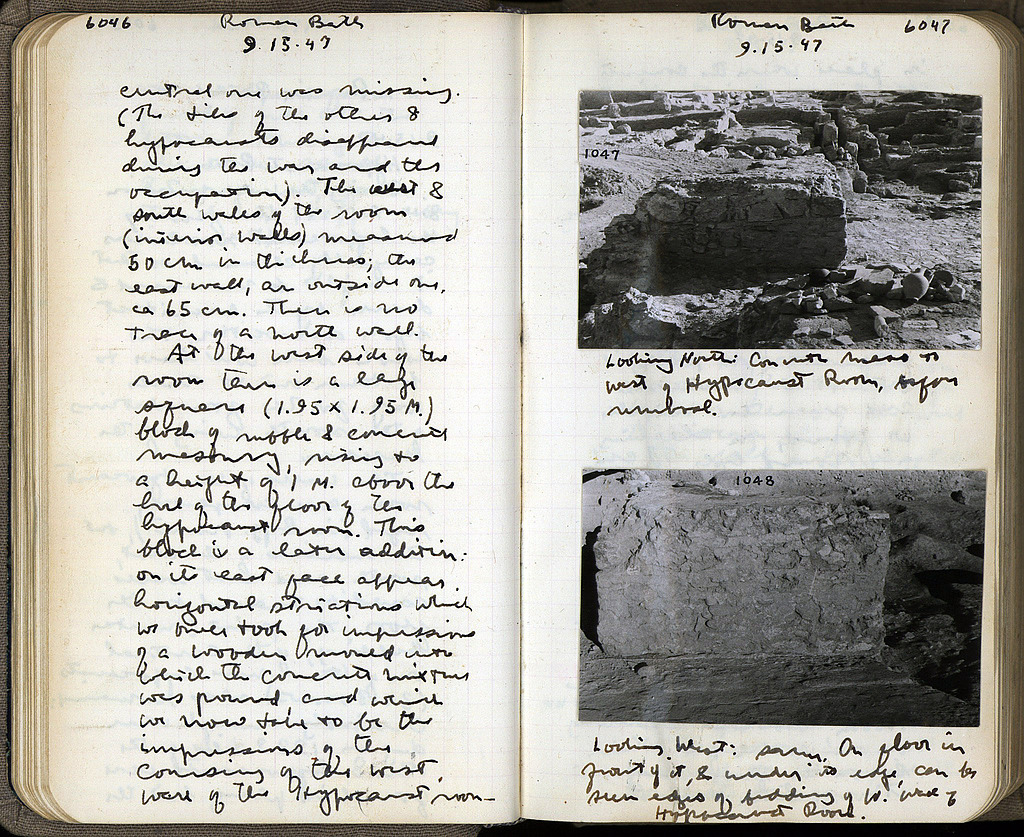 6046
Roman Bath
9.15.47
central one was missing.
(The tiles of the other 8
hypocausts disappeared
during the war and the
occupation). The west &
south walls of the room
(interior walls) measured
50 cm in thickness; the
east wall, an outside one,
ca 65 cm. There is no
trace of a north wall.
At the west side of the
room there is a large
square (1.95 x 1.95 M.)
block of rubble & concrete
masonry, rising to
a height of 1 M. above the
level of the floor of the
hypocaust room. This
block is a later addition:
on its east face appear
horizontal striations which
we once took for impressions
of a wooden mould into
which the concrete mixture
was poured, and which
we now take to be the
impressions of the
coursing of the west
wall of the Hypocaust room—
Roman Bath
6047
9.15.47
1047
Looking North: Concrete mass to
west of Hypocaust Room, before
removal.
1048
Looking West: same. On floor in
front of it, & under its edge, can be
seen edges of bedding of W. wall of
Hypocaust Room.